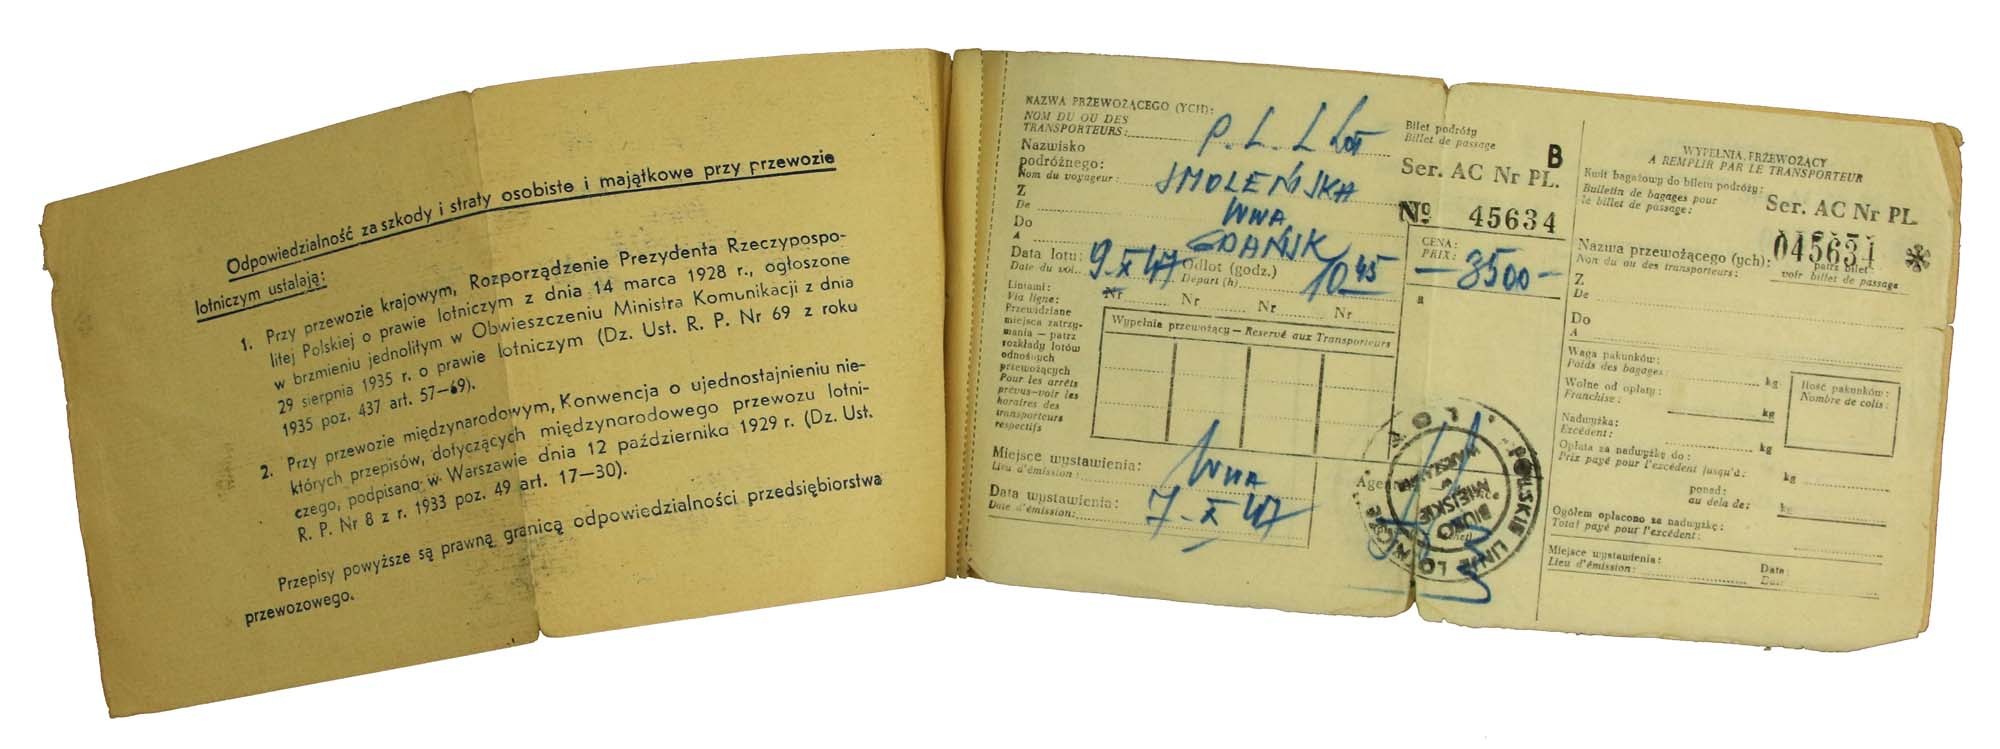 Odpowiedzialność za szkody i straty osobiste i majątkowe przy przewozie
lotniczym ustalają:
1. Przy przewozie krajowym, Rozporządzenie Prezydenta Rzeczypospo-
litej Polskiej o prawie lotniczym z dnia 14 marca 1928 r., ogłoszone
w brzmieniu jednolitym w Obwieszczeniu Ministra Komunikacji z dnia
29 sierpnia 1935 r. o prawie lotniczym (Dz. Ust. R. P. Nr 69 z roku
1935 poz. 437 art. 57—69).
2. Przy przewozie międzynarodowym, Konwencja o ujednostajnieniu nie-
których przepisów, dotyczących międzynarodowego przewozu lotni-
czego, podpisana w Warszawie dnia 12 października 1929 r. (Dz. Ust.
R. P. Nr 8 z r. 1933 poz. 49 art. 17—30).
Przepisy powyższe są prawną granicą odpowiedzialności przedsiębiorstwa
przewozowego.
NAZWA PRZEWOŻĄCEGO (YCH):
NOM DU OU DES
TRANSPORTEURS: P. L. L Lot
Nazwisko
podróżnego:
Nom du voyageur: SMOLEŃSKA
Z
De WWA
Do
A GDAŃSK
Data lotu: 9.X 47 Odlot (godz.) 10 45
Date du vol Départ (h)
Liniami: Nr Nr Nr Nr
Via ligne:
Przewidziane
miejsca zatrzy-
mania – patrz
rozkłady lotów
odnośnych
przewożących
Pour les arrêts
prévus-voir les
horaires des
transporteurs
respectifs
Wypełnia przewożący — Reservé aux Transporteurs
Miejsce wystawienia:
Lieu d'émission: WWA
Data wystawienia:
Date d'émission: 7-X 47
POLSKIE LINIE LOTNICZE LOT
BIURO
MIEJSKIE
w
WARSZAWIE
Bilet podróży
Billet de passage B
Ser. AC Nr PL.
No 45634
CENA:
PRIX: — 3500 —
WYPEŁNIA PRZEWOŻĄCY
A REMPLIR PAR LE TRANSPORTEUR
Kwit bagażowy do biletu podróży:
Bulletin de bagages pour
le billet de passage:
Ser. AC Nr PL.
045634
Nazwa przewożącego (ych): patrz bilet
Nom du ou des transporteurs: voir billet de passage
Z
De
Do
A
Waga pakunków:
Poids des bagages: kg
Wolne od opłaty:
Franchise: kg
Ilość pakunków:
Nombre de colis:
Nadwyżka:
Excédent: kg
Opłata za nadwyżkę do:
Prix payé pour l'excédent jusqu'à: kg
ponad:
au dela de: kg
Ogółem opłacono za nadwyżkę:
Total payé pour l'excédent:
Miejsce wystawienia: Data:
Lieu d'émission: Date: